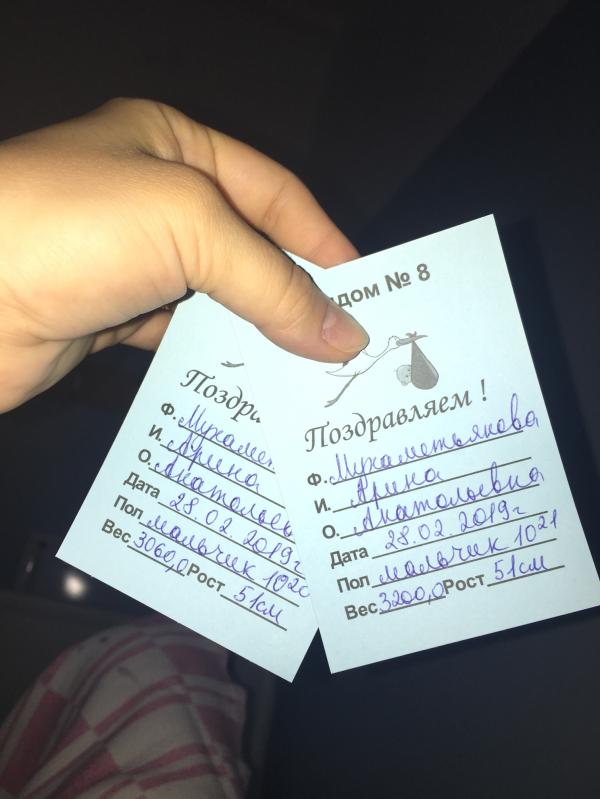 Поздра
Ф. Мухамет
И. Арина
О. Анатольев
Дата 28.02.2019г
Пол мальчик 10²⁰
Вес 3060,0 Рост 51см
дом № 8
Поздравляем !
Ф. Мухаметьянова
И. Арина
О. Анатольевна
Дата 28.02.2019г
Пол мальчик 10²¹
Вес 3200,0 Рост 51см